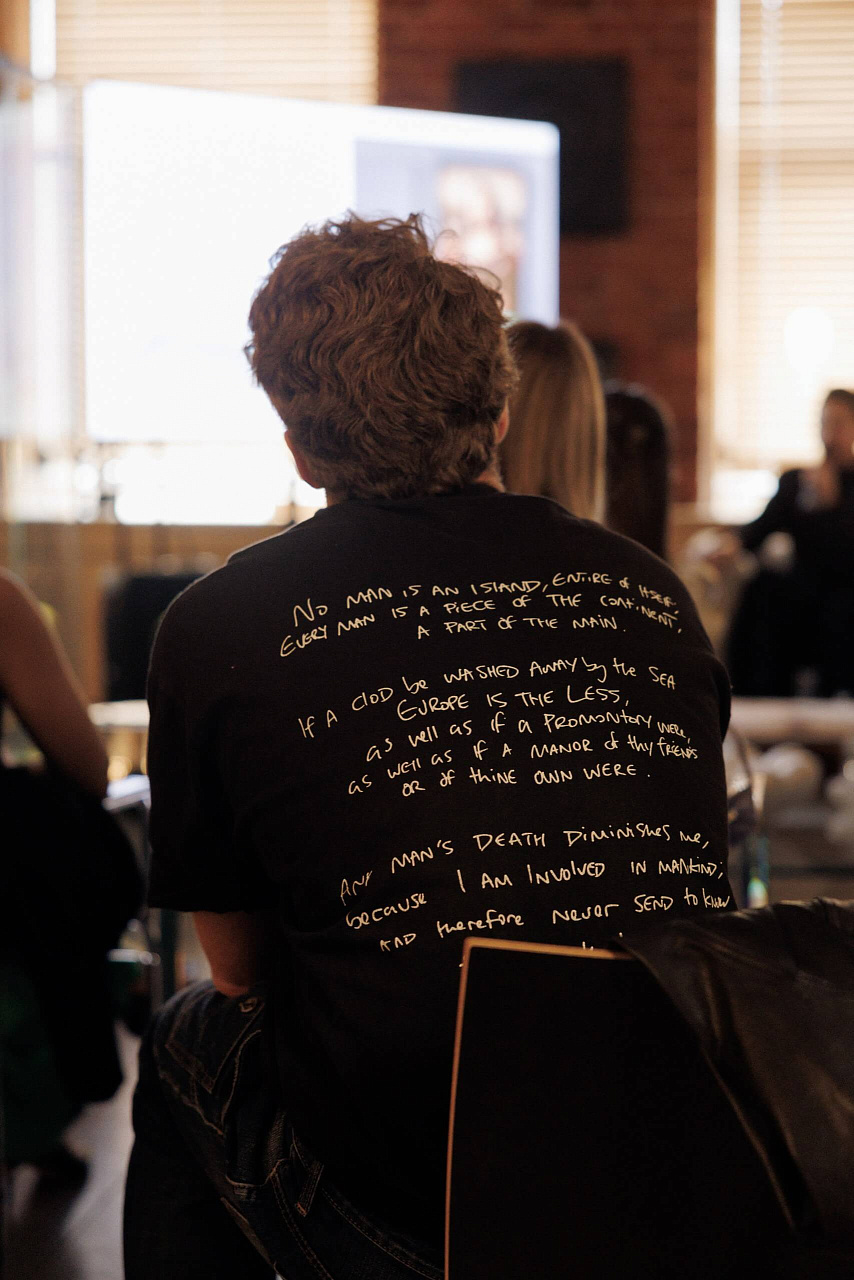 No MAN IS AN ISLAND, ENTIRE of ITSELF,
EVERY MAN IS A PIECE OF THE CONTINENT,
A PART OF THE MAIN.
If A CLOD be WASHED AWAY by the SEA
EUROPE IS THE LESS,
as well as if a PROMONTORY WERE,
as well as if A MANOR of thy FRIENDS
OR of thine OWN WERE.
ANY MAN'S DEATH DIMINISHES me,
because I AM INVOLVED IN MANKIND;
AND therefore never SEND to know